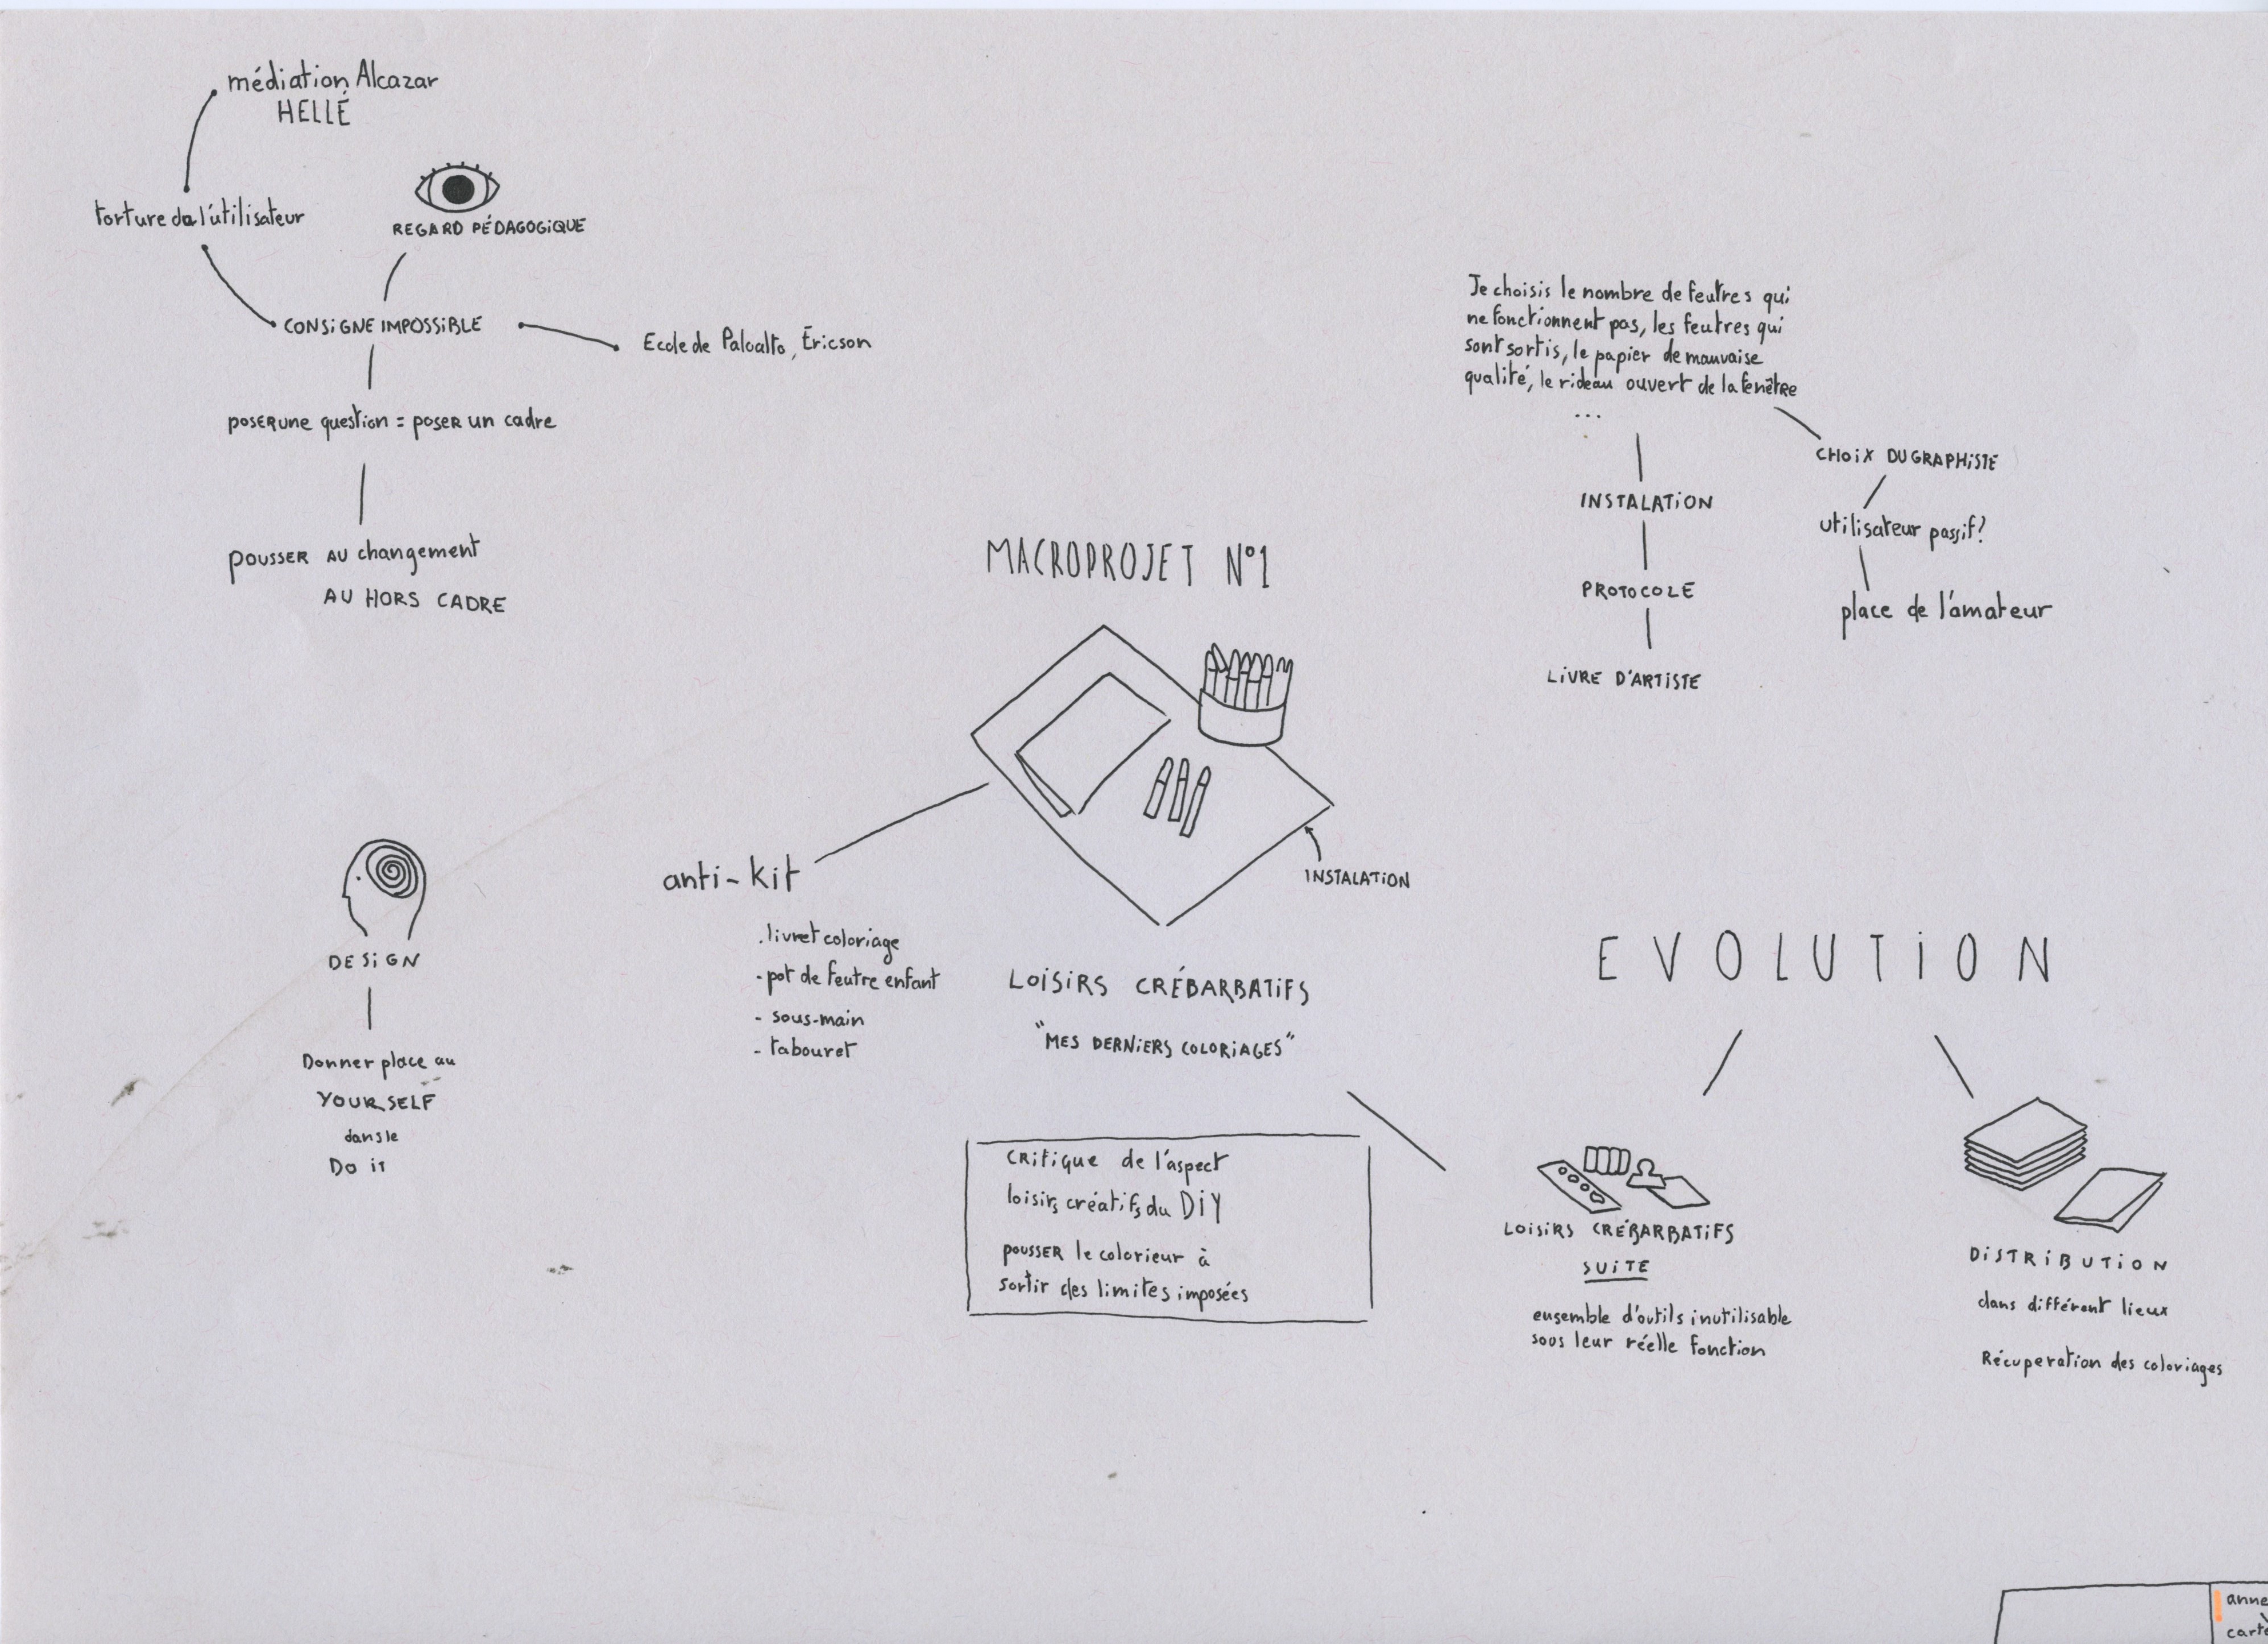 médiation Alcazar
HELLÉ
torture de l'utilisateur
REGARD PÉDAGOGIQUE
CONSIGNE IMPOSSIBLE
Ecole de Paloalto, Éricson
poser une question = poser un cadre
pousser au changement
AU HORS CADRE
Je choisis le nombre de feutres qui
ne fonctionnent pas, les feutres qui
sont sortis, le papier de mauvaise
qualité, le rideau ouvert de la fenêtre
...
CHOIX DU GRAPHISTE
utilisateur passif?
place de l'amateur
INSTALATION
PROTOCOLE
LIVRE D'ARTISTE
MACROPROJET N°1
INSTALATION
anti-kit
. livret coloriage
- pot de feutre enfant
- sous-main
- tabouret
LOISIRS CRÉBARBATIFS
"MES DERNIERS COLORIAGES"
critique de l'aspect
loisirs créatifs du DIY
pousser le colorieur à
sortir des limites imposées
DESIGN
Donner place au
YOURSELF
dans le
Do it
EVOLUTION
LOISIRS CRÉBARBATIFS
SUITE
ensemble d'outils inutilisable
sous leur réelle fonction
DISTRIBUTION
dans différent lieux
Récuperation des coloriages
anne
cart